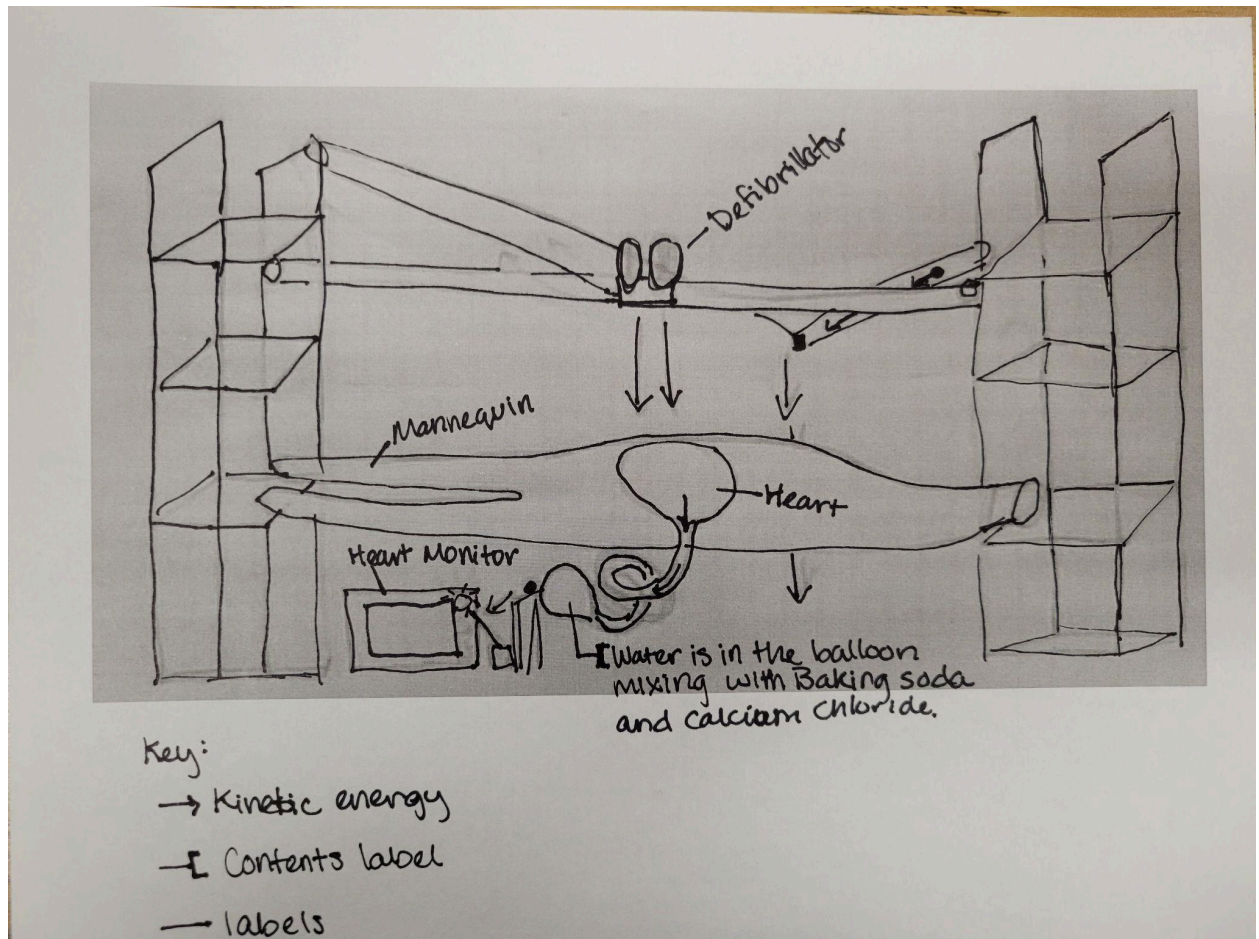 Defibrillator
Mannequin
Heart
Heart Monitor
Water is in the balloon
mixing with Baking soda
and Calcium Chloride.
Key:
Kinetic energy
Contents label
labels